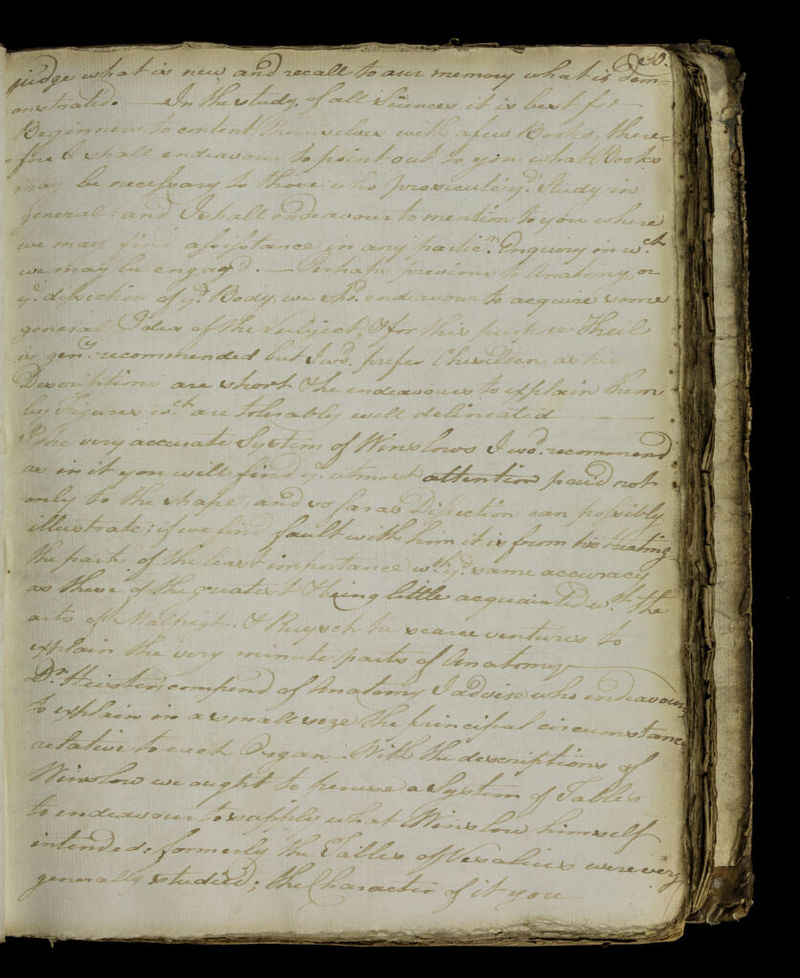 30.
judge what is new, and recall to our memory what is dem=
onstrated. — In the study of all Sciences it is best for
Beginners to content themselves with a few Books, there=
fore I shall endeavour to point out to you what Books
may be necessary to those who prosecute yᵉ Study in
general: and I shall endeavour to mention to you where
we may find assistance in any particʳ. Enquiry in wᶜʰ
we may be engag'd. — Perhaps previous to Anatomy, or
yᵉ disection of yᵉ Body, we shoᵈ. endeavour to acquire some
general Idea of the Subject, & for this purpose Theil
is genˡʸ. recommended but I woᵈ. prefer Cheselden, as his
Descriptions are short & he endeavours to explain them
by Figures wᶜʰ are tolerably well delineated
The very accurate System of Winslows I woᵈ. recommend
as in it you will find yᵉ utmost attention paid not
only to the shape, and so far as Disection can possibly
illustrate: if we find fault with him it is from his treating
the parts of the least importance wᵗʰ yᵉ same accuracy
as those of the greatest & being little acquainted wᵗʰ. the
arts of Malpigh. & Ruysch he scarce ventures to
explain the very minute parts of Anatomy
Dʳ. Heister, compend of Anatomy I advise who endeavours
to explain in a small size the principal circumstances
relative to each Organ. With the descriptions of
Winslow we ought to peruse a System of Tables
to endeavour to supply what Winslow himself
intended. formerly the Tables of Vesalius were very
generally studied; the Character of it you